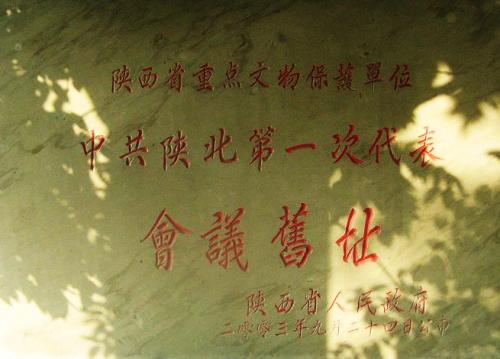 陝西省重点文物保護單位
中共陝北第一次代表
會議舊址
陝西省人民政府
二〇〇三年九月二十四日公布